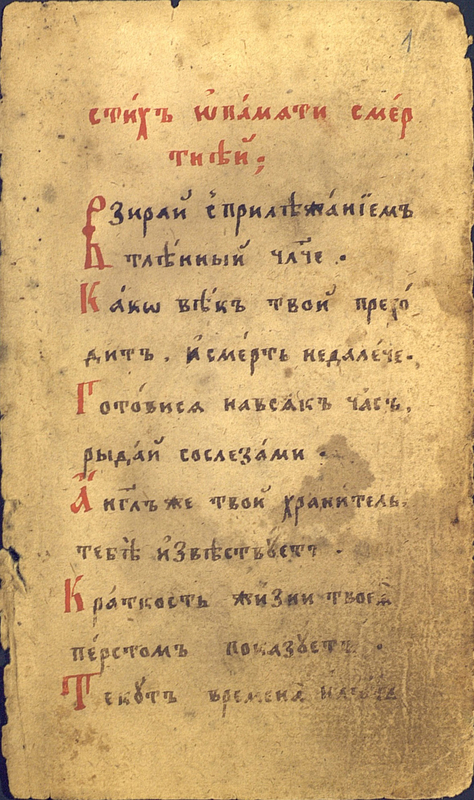 1
сти́хъ ѡ҆ па́мяти сме́р
тнѣй;
Взирай с̾ прилѣжа́нїемъ
тлѣ́нный чл҃че.
Ка́кѡ вѣ́къ твой прехо́
дитъ, и҆ сме́рть недале́че.
Гото́вися на всякъ ча́съ,
рыда́й со слеза́ми.
А҆нг҃лъ же твой храни́тель
тебѣ̀ и҆звѣствꙋетъ.
Кра́ткость жи́зни твоея̀
пе́рстомъ показꙋетъ.
Текꙋтъ времена